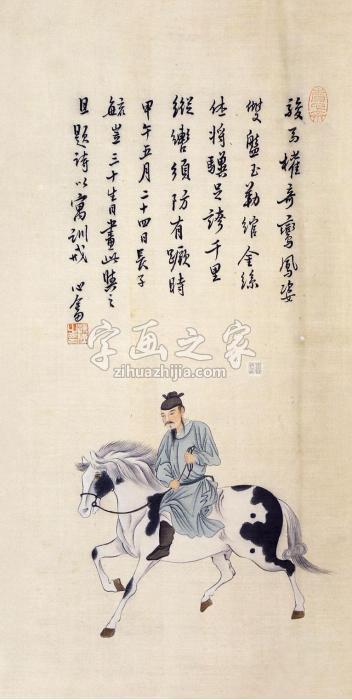 駿马權奇鸞鳳姿
雙盤玉勒綰金絲
休將驥足誇千里
縱轡須防有蹶時
甲午五月二十四日長子
毓岦三十生日畫此與之
且題詩以寓訓戒 心畬
字画之家
zihuazhijia.com